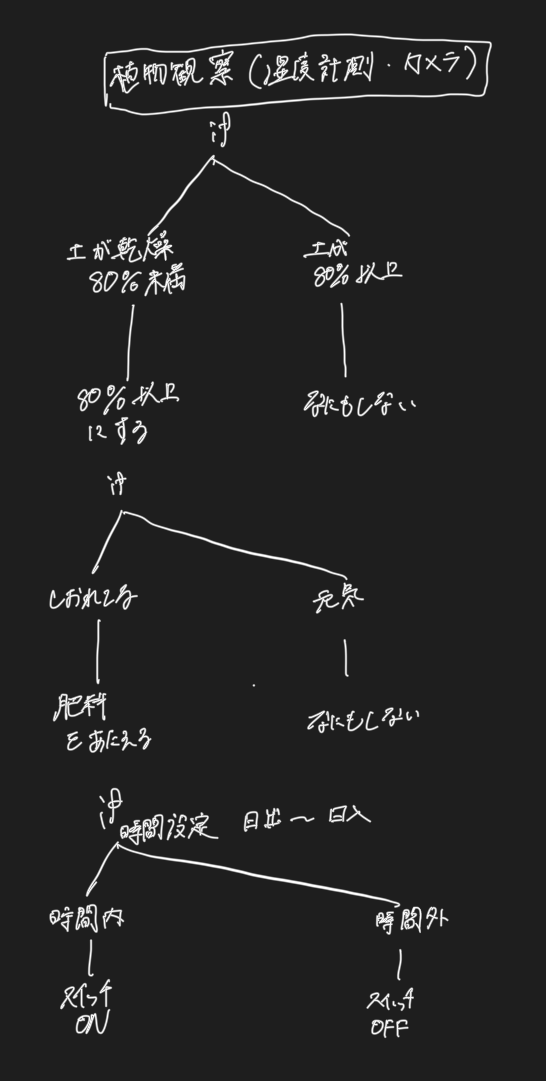 植物観察(湿度計測・カメラ)
if
土が乾燥
80%未満
土が
80%以上
80%以上
にする
なにもしない
if
しおれてる
元気
肥料
をあたえる
なにもしない
if
時間設定 日出〜日入
時間内
時間外
スイッチ
ON
スイッチ
OFF